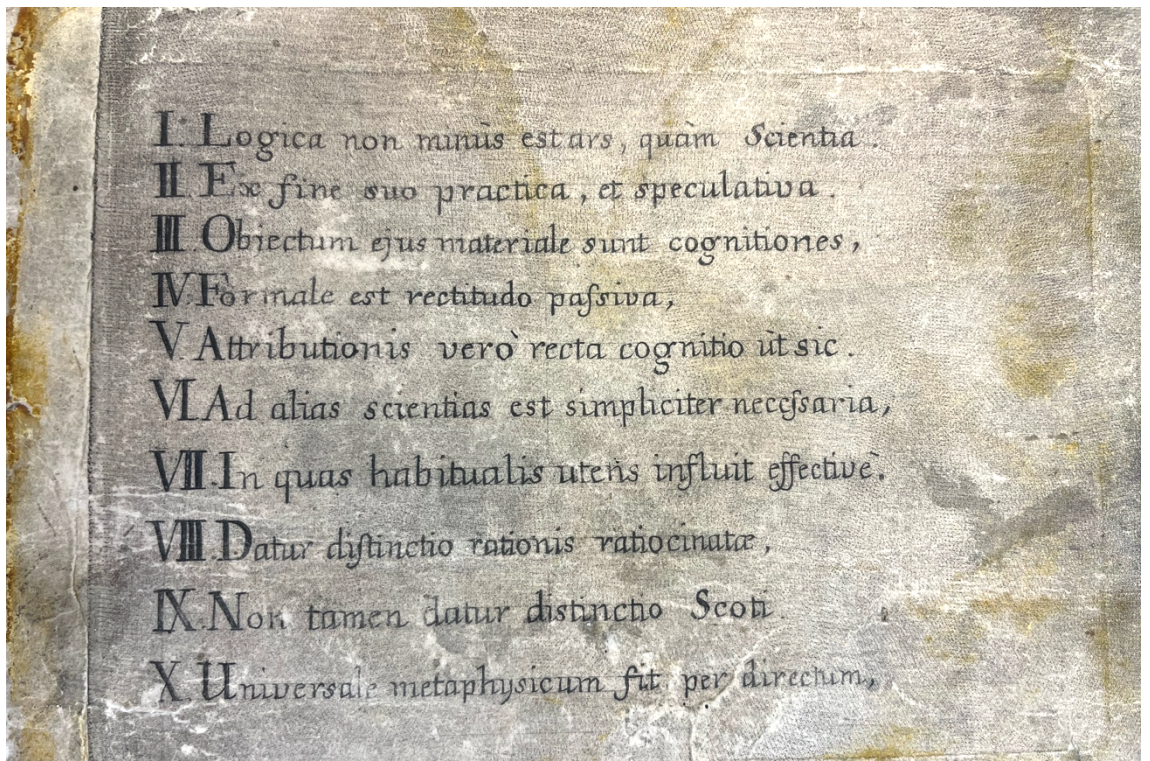 I. Logica non minùs est ars, quàm Scientia.
II. Ex fine suo practica, et speculativa.
III. Obiectum ejus materiale sunt cognitiones,
IV. Formale est rectitudo paſsiva,
V Attributionis verò recta cognitio ùt sic.
VI. Ad alias scientias est simpliciter neceſsaria,
VII. In quas habitualis utens influit effectivè.
VIII. Datur diſtinctio rationis ratiocinatæ,
IX. Non tamen datur distinctio Scoti.
X. Universale metaphysicum fit per directum,